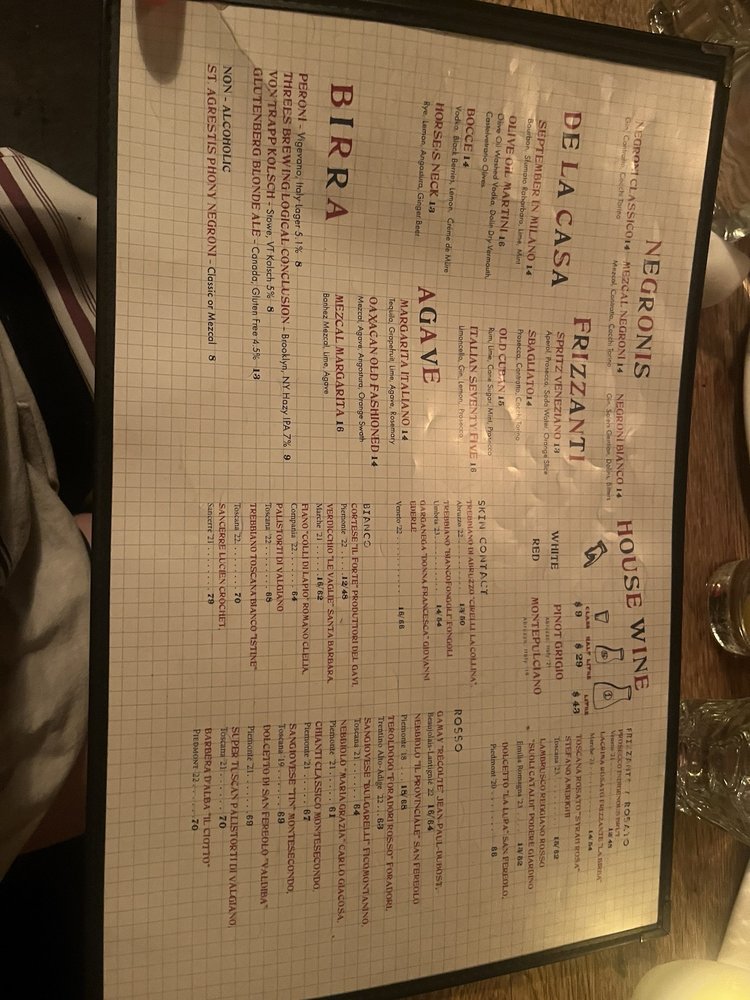 NEGRONIS
NEGRONI CLASSICO 14
Gin, Contratto, Cocchi Torino
MEZCAL NEGRONI 14
Mezcal, Contratto, Cocchi Torino
NEGRONI BIANCO 14
DE LA CASA
SEPTEMBER IN MILANO 14
Bourbon, Sfumato Rabarbaro, Lime, Mint
OLIVE OIL MARTINI 16
Olive Oil Washed Vodka, Dolin Dry Vermouth,
Castelvetrano Olives
BOCCE 14
Vodka, Black Berries, Lemon, Crème de Mûre
HORSE'S NECK 13
Rye, Lemon, Angostura, Ginger Beer
FRIZZANTI
SPRITZ VENEZIANO 13
Aperol, Prosecco, Soda Water, Orange Slice
SBAGLIATO 14
Prosecco, Contratto, Cocchi Torino
OLD CUBAN 15
Rum, Lime, Cane Sugar, Mint, Prosecco
ITALIAN SEVENTY FIVE 16
Limoncello, Gin, Lemon, Prosecco
AGAVE
MARGARITA ITALIANO 14
Tequila, Grapefruit, Lime, Agave, Rosemary
OAXACAN OLD FASHIONED 14
Mezcal, Agave, Angostura, Orange Swath
MEZCAL MARGARITA 16
Banhez Mezcal, Lime, Agave
BIRRA
PERONI - Vigevano, Italy Lager 5.1% 8
THREES BREWING LOGICAL CONCLUSION - Brooklyn, NY Hazy IPA 7% 9
VON TRAPP KÖLSCH - Stowe, VT Kolsch 5% 8
GLUTENBERG BLONDE ALE - Canada, Gluten Free 4.5% 13
NON - ALCOHOLIC
ST AGRESTIS PHONY NEGRONI - Classic or Mezcal 8
HOUSE WINE
GLASS HALF LITRE LITRE
$ 9 $ 29 $ 43
WHITE PINOT GRIGIO
RED MONTEPULCIANO
SKIN CONTACT
TREBBIANO DI ABRUZZO "CIRELLI LA COLLINA",
Abruzzo '22
TREBBIANO "BIANCOFONGOLI" FONGOLI
Umbria '21 14/54
GARGANEGA "DONNA FRANCESCA" GIOVANNI
EDERLE
Veneto '22 16/68
BIANCO
CORTESE "IL FORTE" PRODUTTORI DEL GAVI,
Piemonte '22 12/48
VERDICCHIO "LE VAGLIE" SANTA BARBARA,
Marche '21 16/62
FIANO "COLLI DI LAPIO" ROMANO CLELIA,
Campania '22 64
PALISTORTI DI VALGIANO
Toscana '22 68
TREBBIANO TOSCANA BIANCO "ISTINE"
Toscana '22 70
SANCERRE LUCIEN CROCHET,
Sancerre '21 79
FRIZZANTE ROSATO
TOSCANA ROSATO "SYRAH ROSA"
STEFANO AMERIGHI
Toscana '23
LAMBRUSCO REGGIANO ROSSO
"SUOLI CATALI" PODERE GIARDINO
Emilia Romagna '23
DOLCETTO "LA LUPA" SAN FEREOLO,
Piedmont '20
ROSSO
GAMAY "RÉCOLTE" JEAN-PAUL DUBOST,
Beaujolais-Lantignié 22 16/64
NEBBIOLO "IL PROVINCIALE" SAN FEREOLO
Piemonte '18
TEROLDOGO "FORADORI ROSSO" FORADORI,
Trentino Alto-Adige '22 63
SANGIOVESE "BULGARELLI" FICOMONTANINO
Toscana '21 64
NEBBIOLO "MARIA GRAZIA" CARLO GIACOSA,
Piemonte '21 61
CHIANTI CLASSICO MONTESECONDO,
Piemonte '21 67
SANGIOVESE "TIN" MONTESECONDO,
Toscana '19 69
DOLCETTO DI SAN FEREOLO "VALDIBA"
Piemonte '21 69
SUPER TUSCAN PALISTORTI DI VALGIANO,
Toscana '21 70
BARBERA D'ALBA "IL CIOTTO"
PIEDMONTE '22 70